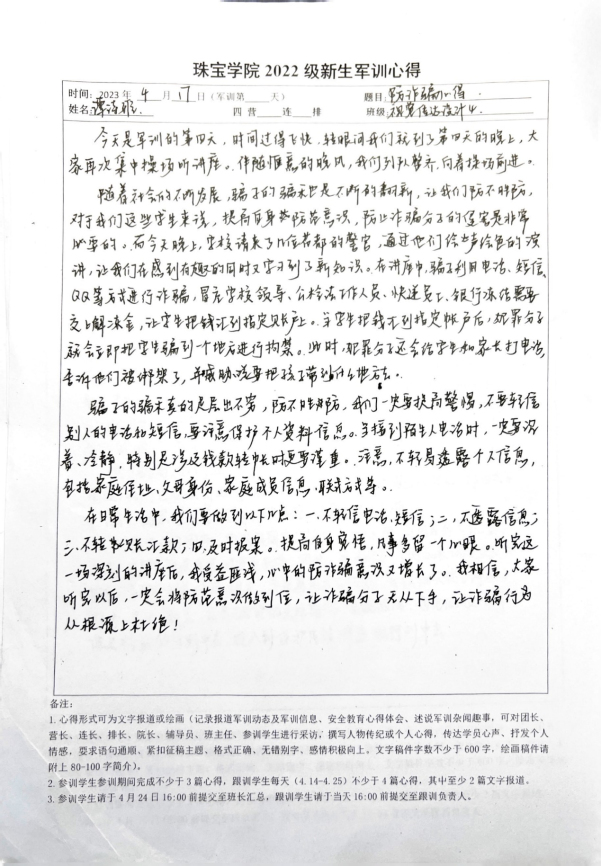 珠宝学院 2022 级新生军训心得
时间：2023 年 4 月 17 日（军训第 天） 题目：防诈骗心得
姓名： 四 营 连 排 班级：视觉传达设计4
今天是军训的第四天，时间过得飞快，转眼间我们就到了第四天的晚上，大
家再次集中操场听讲座。伴随惬意的晚风，我们列队整齐，向着操场前进。
随着社会的不断发展，骗子的骗术也是不断的翻新，让我们防不胜防，
对于我们这些学生来说，提高自身防范意识，防止诈骗分子的侵害是非常
必要的。而今天晚上，学校请来了几位首都的警官，通过他们绘声绘色的演
讲，让我们在感到有趣的同时又学习到了新知识。在讲座中，骗子利用电话、短信、
QQ等方式进行诈骗，冒充学校领导、公检法工作人员、快递员工、银行冻结需要
交上解冻金，让学生把钱汇到指定账户上。当学生把钱汇到指定帐户后，犯罪分子
就会立即把学生骗到一个地方进行拘禁。此时，犯罪分子还会给学生和家长打电话，
告诉他们被绑架了，并威胁说要把孩子带到什么地方去。
骗子的骗术真的是层出不穷，防不胜防，我们一定要提高警惕，不要轻信
别人的电话和短信，要注意保护个人资料信息。当接到陌生人电话时，一定要沉
着、冷静，特别是涉及钱款转帐时更要谨重。注意，不轻易透露个人信息，
包括家庭住址、父母身份、家庭成员信息、联系方式等。
在日常生活中，我们要做到以下几点：一、不轻信电话、短信；二、不透露信息；
三、不轻易汇款；四、及时报案。提高自身警惕，凡事多留一个心眼。听完这
一场深刻的讲座后，我受益匪浅，心中的防诈骗意识又增长了。我相信，大家
听完以后，一定会将防范意识做到位，让诈骗分子无从下手，让诈骗行为
从根源上杜绝！
备注：
1. 心得形式可为文字报道或绘画（记录报道军训动态及军训信息、安全教育心得体会、述说军训杂闻趣事，可对团长、
营长、连长、排长、院长、辅导员、班主任、参训学生进行采访；撰写人物传纪或个人心得，传达学员心声、抒发个人
情感，要求语句通顺、紧扣征稿主题、格式正确、无错别字、感情积极向上。文字稿件字数不少于 600 字，绘画稿件请
附上 80-100 字简介）。
2. 参训学生参训期间完成不少于 3 篇心得，跟训学生每天（4.14-4.25）不少于 4 篇心得，其中至少 2 篇文字报道。
3. 参训学生请于 4 月 24 日 16:00 前提交至班长汇总，跟训学生请于当天 16:00 前提交至跟训负责人。